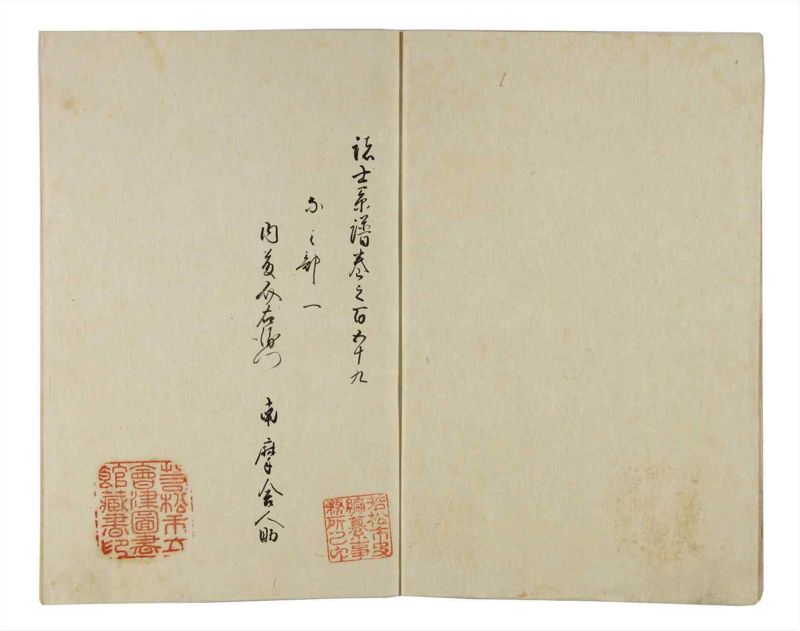 諸士系譜巻之百五十九
な之部 一
内藤介右衛門 南摩舎人助
若松市史
編纂事
務所之印
若松市立
會津圖書
館藏書印